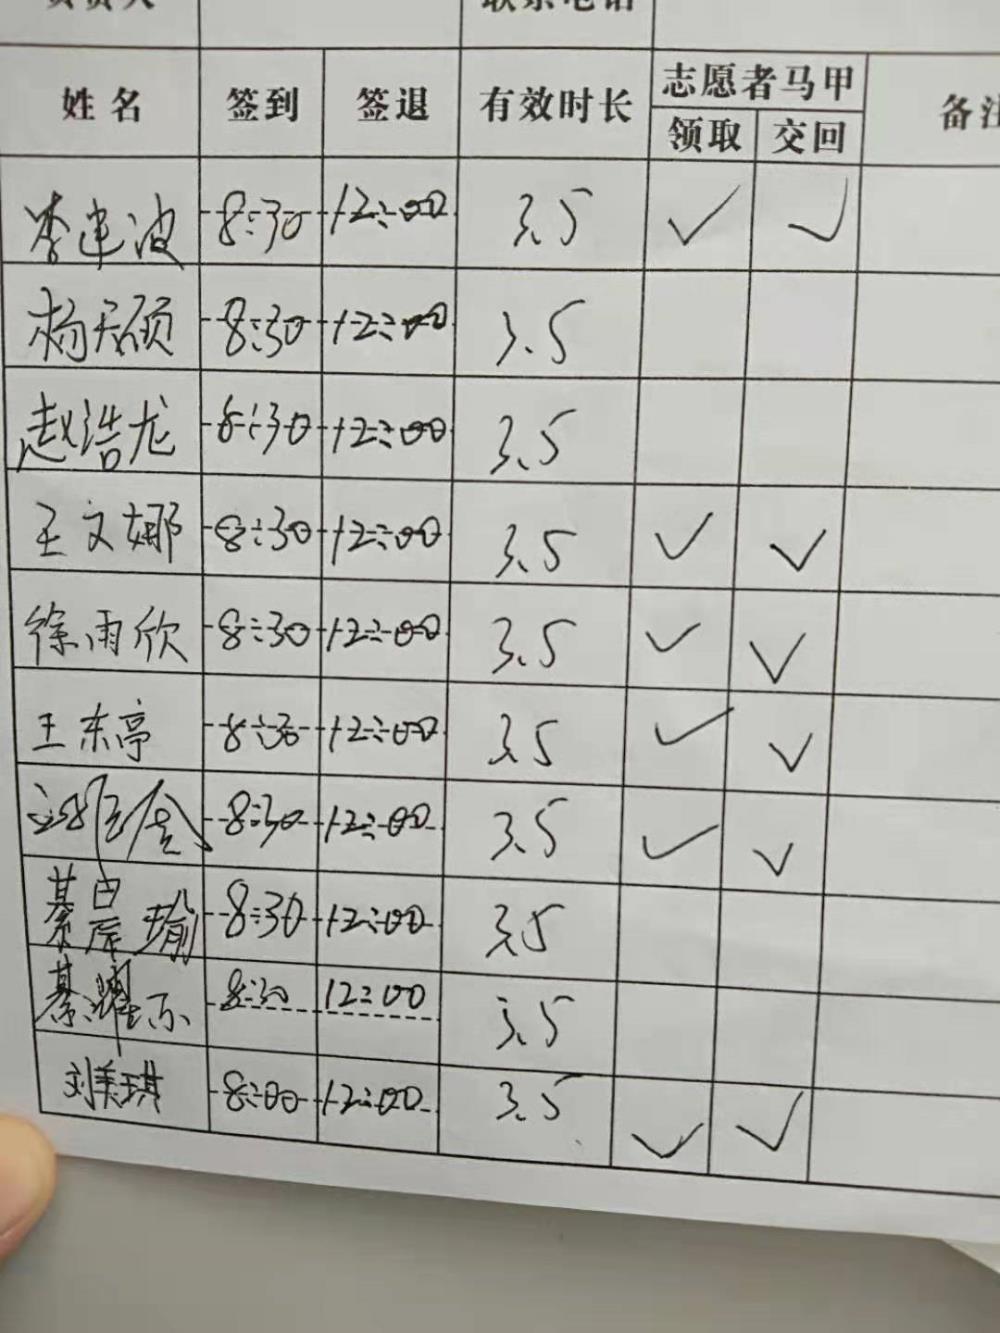 姓名 签到 签退 有效时长 志愿者马甲 备注
领取 交回
李建波 8:30 12:00 3.5 ✓ ✓
杨天硕 8:30 12:00 3.5
赵浩龙 8:30 12:00 3.5
王文娜 8:30 12:00 3.5 ✓ ✓
徐雨欣 8:30 12:00 3.5 ✓ ✓
王东亭 8:30 12:00 3.5 ✓ ✓
8:30 12:00 3.5 ✓ ✓
綦晨瑜 8:30 12:00 3.5
綦耀 8:30 12:00 3.5
刘美琪 8:00 12:00 3.5 ✓ ✓